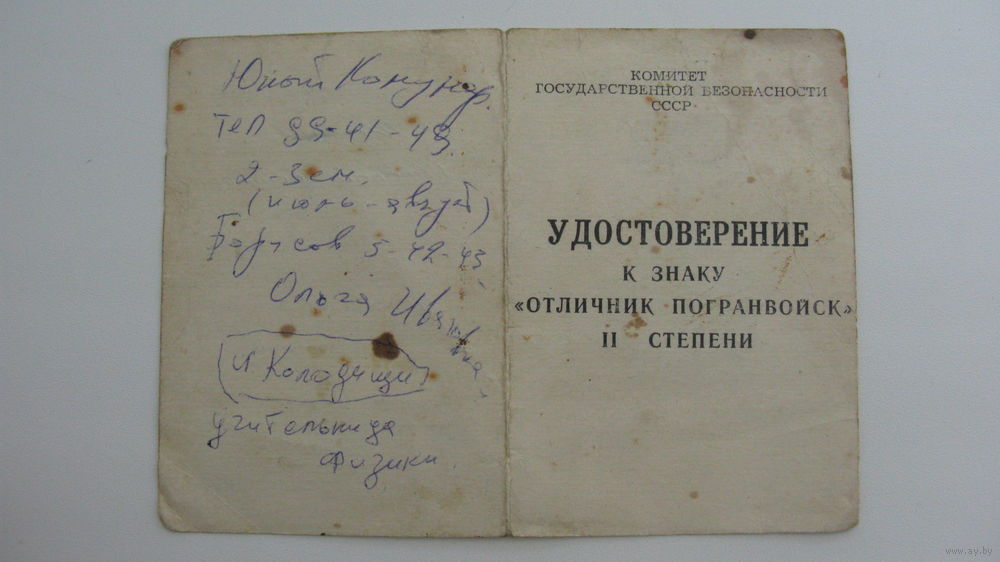 Юный Комунар.
тел 99-41-49.
2-3 см.
(июнь-август)
Борисов 5-42-43
Ольга Ивановна
И. Колодищи
учительница
физики.
КОМИТЕТ
ГОСУДАРСТВЕННОЙ БЕЗОПАСНОСТИ
СССР
УДОСТОВЕРЕНИЕ
К ЗНАКУ
«ОТЛИЧНИК ПОГРАНВОЙСК»
II СТЕПЕНИ
www.ay.by